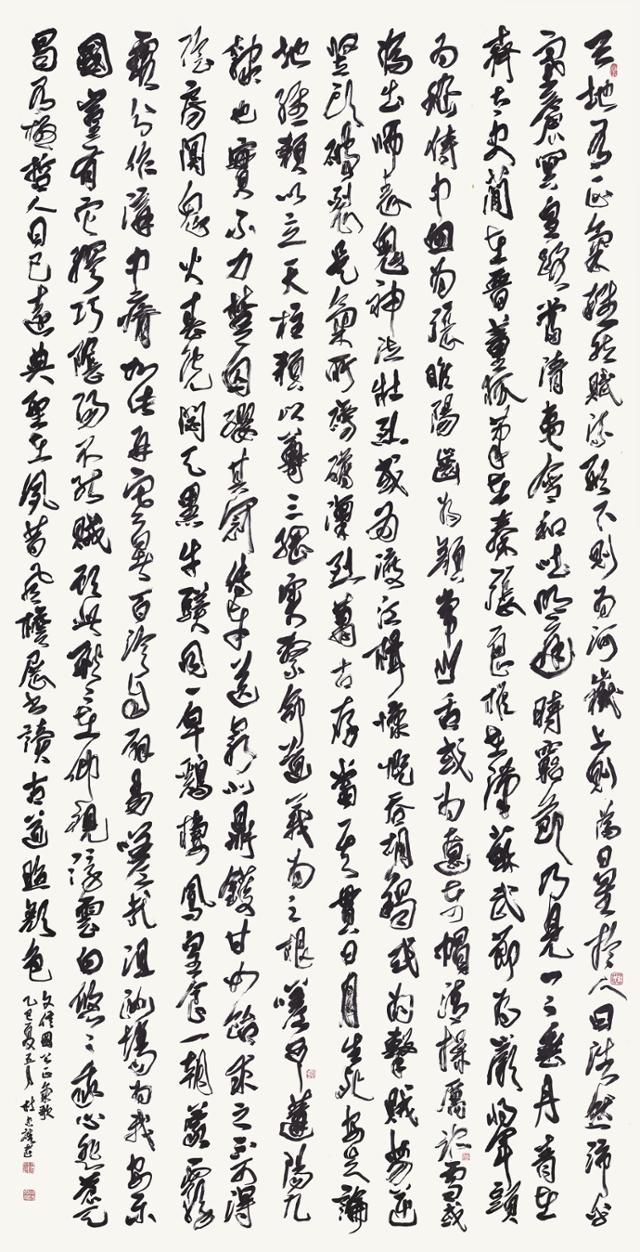 天地有正氣雜然賦流形下則為河嶽上則為日星於人曰浩然沛乎
塞蒼冥皇路當清夷含和吐明庭時窮節乃見一一垂丹青在
齊太史簡在晉董狐筆在秦張良椎在漢蘇武節為嚴將軍頭
為嵇侍中血為張睢陽齒為顏常山舌或為遼東帽清操厲冰雪或
為出師表鬼神泣壯烈或為渡江楫慷慨吞胡羯或為擊賊笏逆
豎頭破裂是氣所磅礴凜烈萬古存當其貫日月生死安足論
地維賴以立天柱賴以尊三綱實繫命道義為之根嗟予遘陽九
隸也實不力楚囚纓其冠傳車送窮北鼎鑊甘如飴求之不可得
陰房闃鬼火春院閟天黑牛驥同一皁雞棲鳳皇食一朝蒙霧
露分作溝中瘠如此再寒暑百沴自辟易嗟哉沮洳場為我安樂
國豈有它繆巧陰陽不能賊顧此耿耿在仰視浮雲白悠悠我心悲蒼天
曷有極哲人日已遠典型在夙昔風檐展書讀古道照顏色
文信國公正氣歌
乙巳夏五月